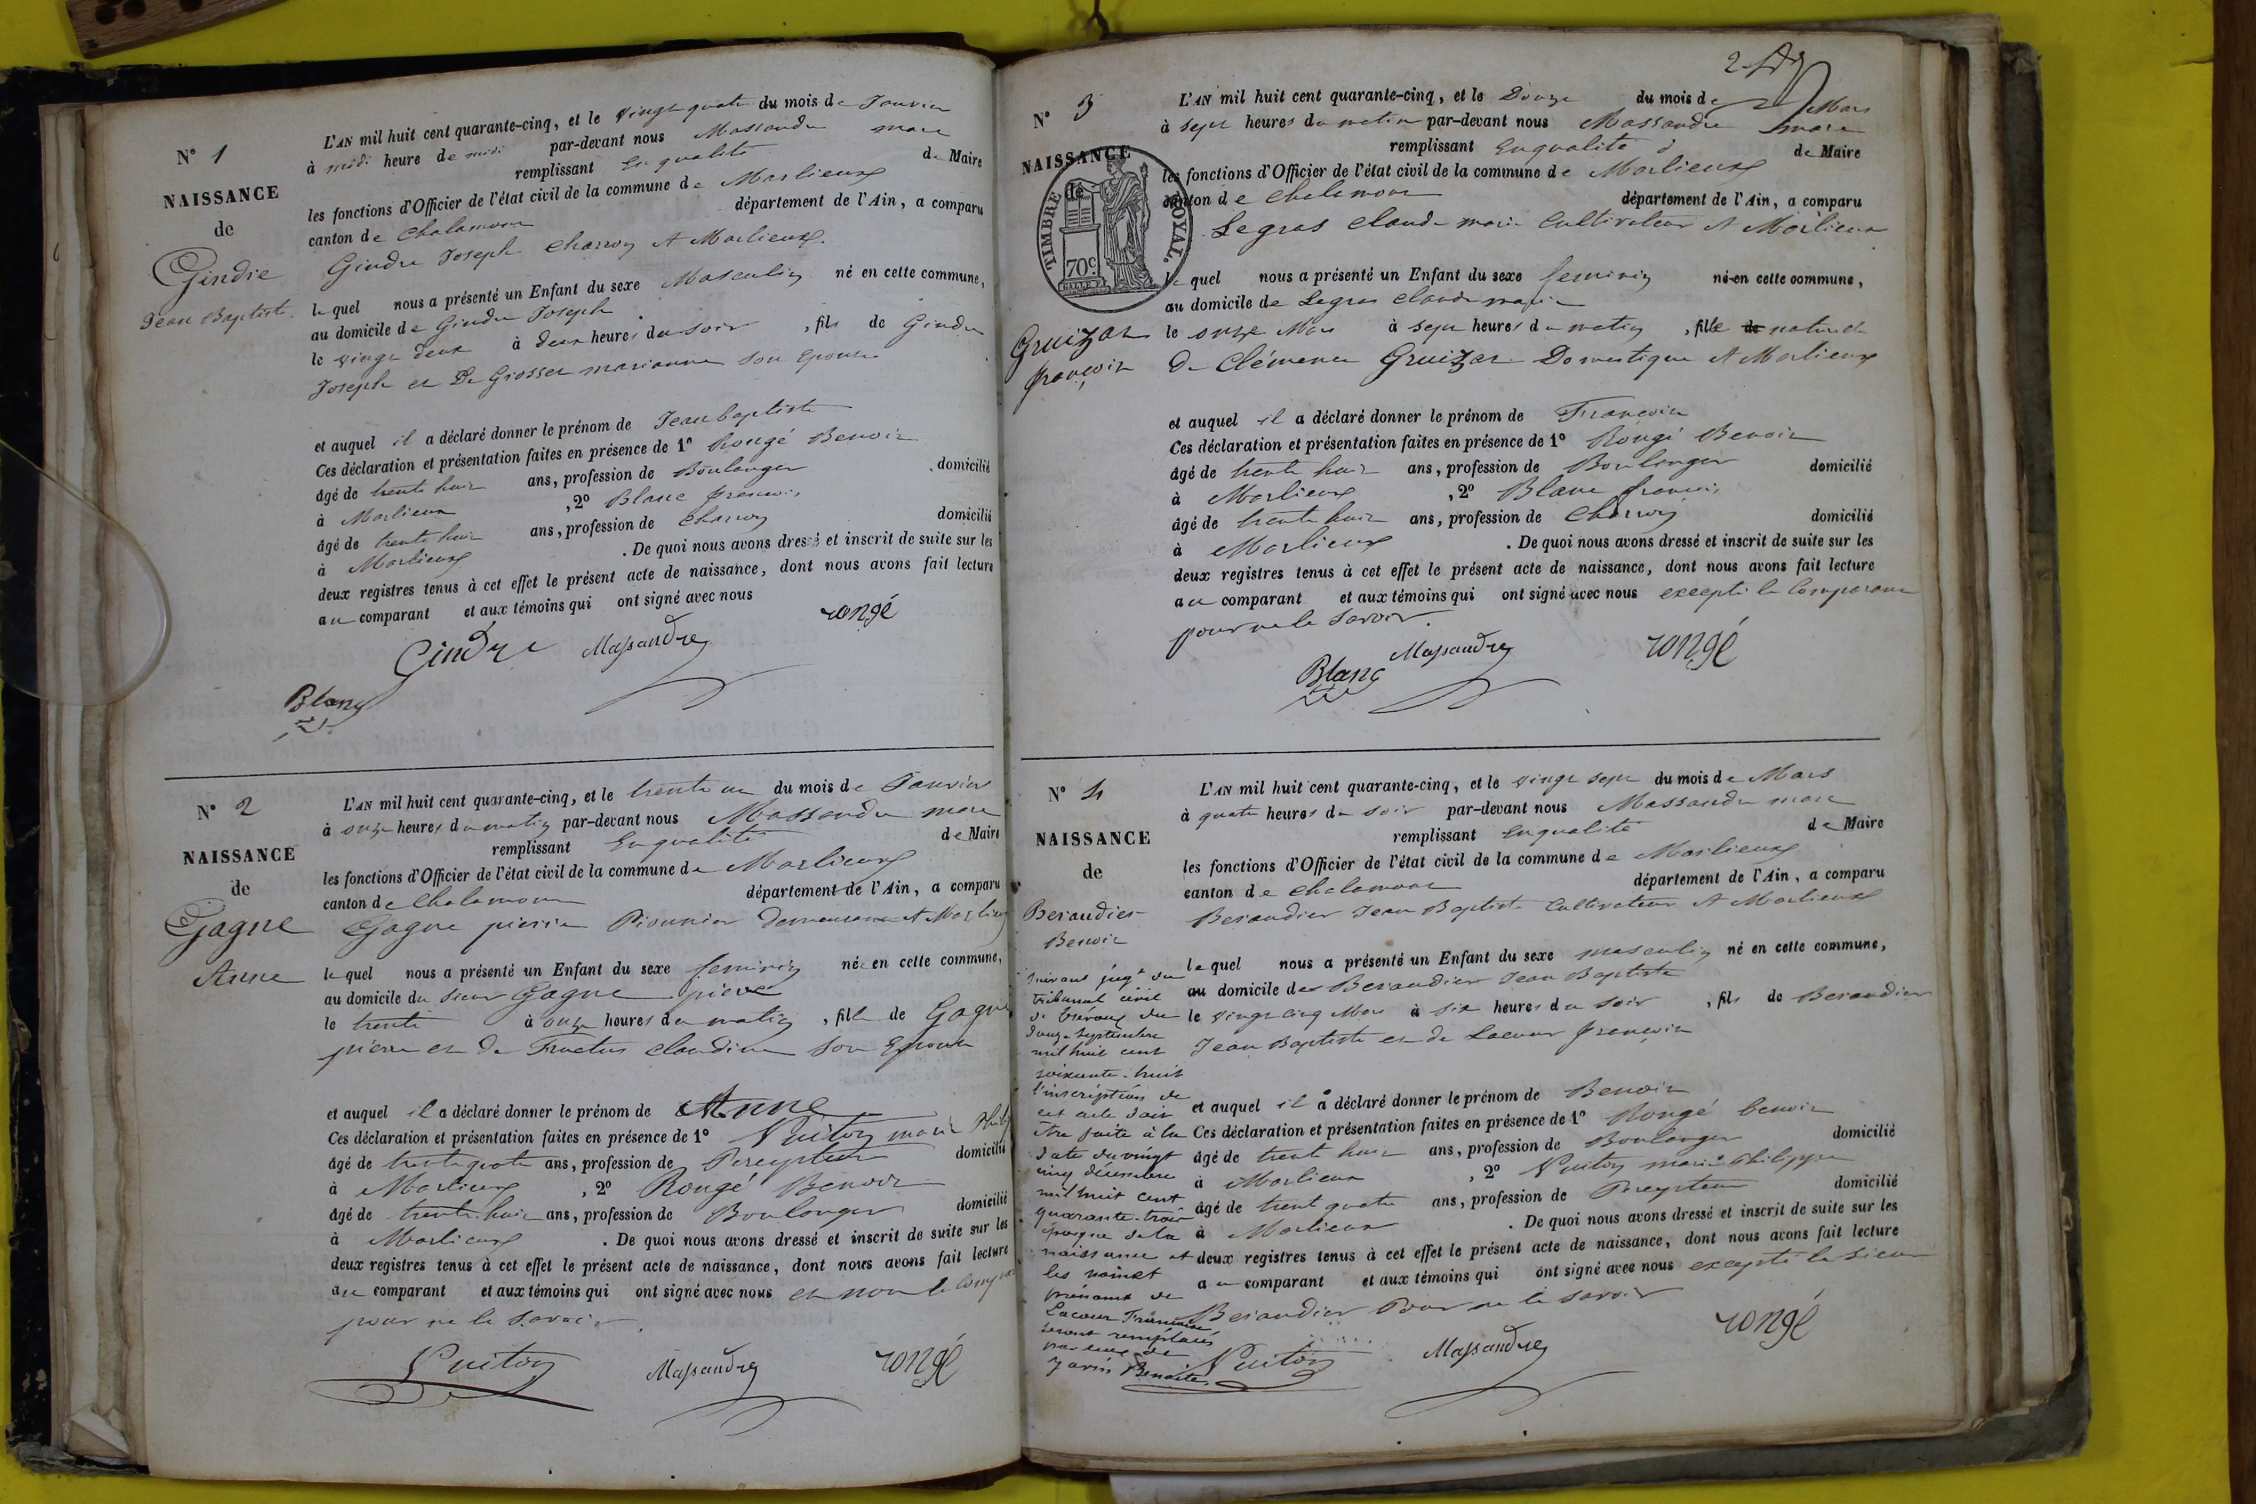 N° 1
NAISSANCE
de
Gindre
Jean Baptiste
L'AN mil huit cent quarante-cinq, et le vingt quatre du mois de Janvier
à midi heure de midi par-devant nous Massandre marc
remplissant En qualité de Maire
les fonctions d'Officier de l'état civil de la commune de Marlieux
canton de Chalamont département de l'Ain, a comparu
Gindre Joseph charron A Marlieux.
le quel nous a présenté un Enfant du sexe Masculin né en cette commune,
au domicile de Gindre Joseph
le vingt deux à deux heures du soir, fils de Gindre
Joseph et De Grosset marianne son Epouse
et auquel il a déclaré donner le prénom de Jean baptiste
Ces déclaration et présentation faites en présence de 1° Rongé Benoit
âgé de trente huit ans, profession de Boulanger domicilié
à Marlieux, 2° Blanc francois
âgé de trente huit ans, profession de charron domicilié
à Marlieux. De quoi nous avons dressé et inscrit de suite sur les
deux registres tenus à cet effet le présent acte de naissance, dont nous avons fait lecture
au comparant et aux témoins qui ont signé avec nous
Gindre Massandre rongé
Blanc
N° 2
NAISSANCE
de
Gagne
Anne
L'AN mil huit cent quarante-cinq, et le trente un du mois de Janvier
à onze heures du matin par-devant nous Massandre marc
remplissant En qualité de Maire
les fonctions d'Officier de l'état civil de la commune de Marlieux
canton de Chalamont département de l'Ain, a comparu
Gagne pierre Pionnier demeurant A Marlieux
le quel nous a présenté un Enfant du sexe feminin née en cette commune,
au domicile du sieur Gagne pierre
le trente à onze heures du matin, fille de Gagne
pierre et de Fructus claudine son Epouse
et auquel il a déclaré donner le prénom de Anne
Ces déclaration et présentation faites en présence de 1° Nuiton marie Phili
âgé de trente quatre ans, profession de Percepteur domicilié
à Marlieux, 2° Rongé Benoit
âgé de trente huit ans, profession de Boulanger domicilié
à Marlieux. De quoi nous avons dressé et inscrit de suite sur les
deux registres tenus à cet effet le présent acte de naissance, dont nous avons fait lecture
au comparant et aux témoins qui ont signé avec nous et non le compar
pour ne le savoir.
Nuiton Massandre rongé
2
N° 3
NAISSANCE
de
TIMBRE ROYAL.
70c.
Gruizat
françoise
L'AN mil huit cent quarante-cinq, et le Douze du mois de Mars
à sept heures du matin par-devant nous Massandre marc
remplissant En qualité d de Maire
les fonctions d'Officier de l'état civil de la commune de Marlieux
canton de Chalamont département de l'Ain, a comparu
Legras claude marie Cultivateur A Marlieux
le quel nous a présenté un Enfant du sexe feminin né en cette commune,
au domicile de Legras claude marie
le onze Mars à sept heures du matin, fille de naturelle
De Clémence Gruizat Domestique A Marlieux
et auquel il a déclaré donner le prénom de Françoise
Ces déclaration et présentation faites en présence de 1° Rongé Benoit
âgé de trente huit ans, profession de Boulanger domicilié
à Marlieux, 2° Blanc francois
âgé de trente huit ans, profession de Charron domicilié
à Marlieux. De quoi nous avons dressé et inscrit de suite sur les
deux registres tenus à cet effet le présent acte de naissance, dont nous avons fait lecture
au comparant et aux témoins qui ont signé avec nous excepté le Comparant
pour ne le savoir.
Blanc Massandre rongé
N° 4
NAISSANCE
de
Beraudier
Benoit
suivant jugt du
tribunal civil
de Trévoux du
douze septembre
mil huit cent
soixante-huit
l'inscription de
cet acte doit
être faite à la
date du vingt
cinq décembre
mil huit cent
quarante-trois
époque de la
naissance et
les noms et
prénoms de
Lacour Françoise
seront remplacés
par ceux de
Benoite.
L'AN mil huit cent quarante-cinq, et le vingt sept du mois de Mars
à quatre heures du soir par-devant nous Massandre marc
remplissant En qualité de Maire
les fonctions d'Officier de l'état civil de la commune de Marlieux
canton de Chalamont département de l'Ain, a comparu
Beraudier Jean Baptiste Cultivateur A Marlieux
le quel nous a présenté un Enfant du sexe masculin né en cette commune,
au domicile de Beraudier Jean Baptiste
le vingt cinq Mars à six heures du soir, fils de Beraudier
Jean Baptiste et de Lacour françoise
et auquel il a déclaré donner le prénom de Benoit
Ces déclaration et présentation faites en présence de 1° Rongé benoit
âgé de trente huit ans, profession de Boulanger domicilié
à Marlieux, 2° Nuiton marie Philippe
âgé de trente quatre ans, profession de Percepteur domicilié
à Marlieux. De quoi nous avons dressé et inscrit de suite sur les
deux registres tenus à cet effet le présent acte de naissance, dont nous avons fait lecture
au comparant et aux témoins qui ont signé avec nous excepté le sieur
Beraudier Pour ne le savoir
Nuiton Massandre rongé